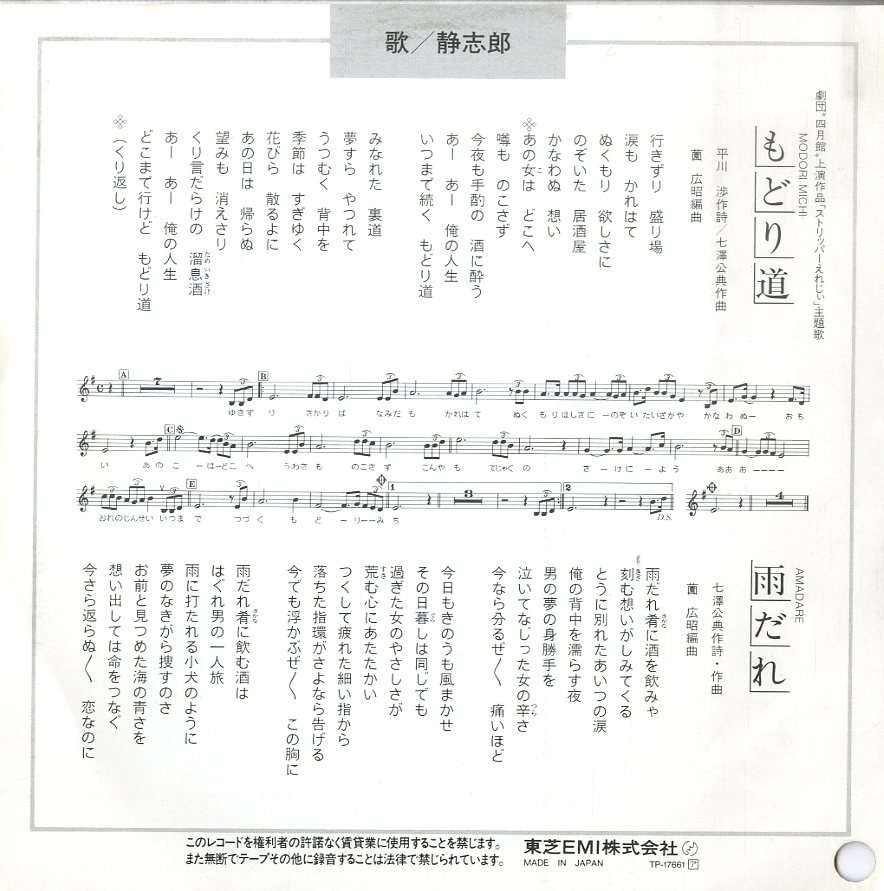 歌／静志郎
劇団“四月館”上演作品「ストリッパーえれじぃ」主題歌
もどり道
MODORI MICHI
平川　渉作詩／七澤公典作曲
薗　広昭編曲
行きずり　盛り場
涙も　かれはて
ぬくもり　欲しさに
のぞいた　居酒屋
かなわぬ　想い
あの女は　どこへ
噂も　のこさず
今夜も手酌の　酒に酔う
あー　あー　俺の人生
いつまで続く　もどり道
みなれた　裏道
夢すら　やつれて
うつむく　背中を
季節は　すぎゆく
花びら　散るよに
あの日は　帰らぬ
望みも　消えさり
くり言だらけの　溜息酒
あー　あー　俺の人生
どこまで行けど　もどり道
（くり返し）
A 7 B
ゆきずり さかりば なみだも かれはて ぬくもりほしさに ーのぞいたいざかや かなわぬー おも
C D
い あのこーはーどこへ うわさも のこさず こんやも てじゃくの さーけにーよう ああ あーーーー
E 1 3 2 D.S. 4
おれのじんせい いつまで つづく もどーりーーみち
雨だれ
AMADARE
七澤公典作詩・作曲
薗　広昭編曲
雨だれ肴に酒を飲みゃ
刻む想いがしみてくる
とうに別れたあいつの涙
俺の背中を濡らす夜
男の夢の身勝手を
泣いてなじった女の辛さ
今なら分るぜ〱　痛いほど
今日もきのうも風まかせ
その日暮しは同じでも
過ぎた女のやさしさが
荒む心にあたたかい
つくして疲れた細い指から
落ちた指環がさよなら告げる
今でも浮かぶぜ〱　この胸に
雨だれ肴に飲む酒は
はぐれ男の一人旅
雨に打たれる小犬のように
夢のなきがら捜すのさ
お前と見つめた海の青さを
想い出しては命をつなぐ
今さら返らぬ〱　恋なのに
このレコードを権利者の許諾なく賃貸業に使用することを禁じます。
また無断でテープその他に録音することは法律で禁じられています。
東芝EMI株式会社
MADE IN JAPAN
TP-17661 ア